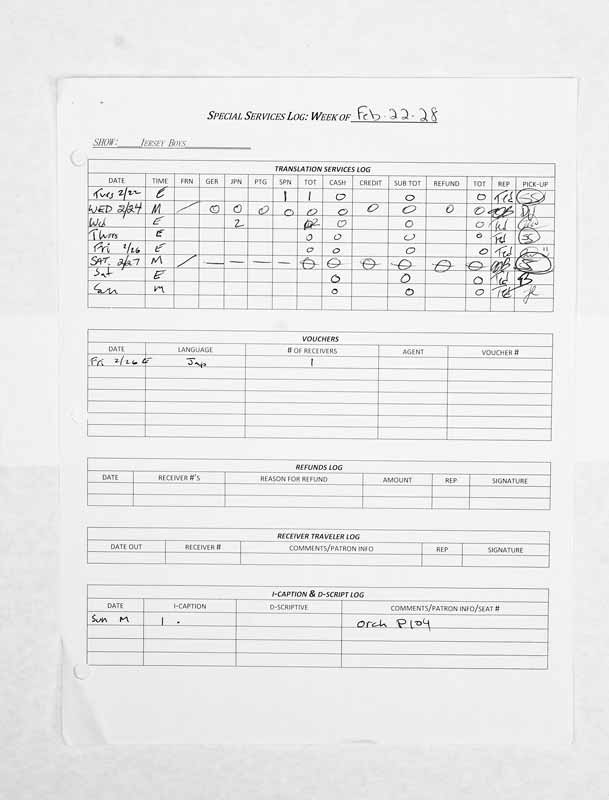 SPECIAL SERVICES LOG: WEEK OF Feb. 22-28
SHOW: JERSEY BOYS
TRANSLATION SERVICES LOG
DATE TIME FRN GER JPN PTG SPN TOT CASH CREDIT SUB TOT REFUND TOT REP PICK-UP
Tues 2/22 E 1 1 0 0 0 Ted
WED 2/24 M / 0 0 0 0 0 0 0 0 0 0
Wed E 2 0 0 0 Ted
Thurs E 0 0 0 0 Ted
Fri 2/26 E 0 0 0 0 Ted
SAT. 2/27 M / — — — — 0 0 0 0 0 0
Sat E 0 0 0 Ted
Sun M 0 0 0 Ted
VOUCHERS
DATE LANGUAGE # OF RECEIVERS AGENT VOUCHER #
Fri 2/26 E Jap 1
REFUNDS LOG
DATE RECEIVER #'S REASON FOR REFUND AMOUNT REP SIGNATURE
RECEIVER TRAVELER LOG
DATE OUT RECEIVER # COMMENTS/PATRON INFO REP SIGNATURE
I-CAPTION & D-SCRIPT LOG
DATE I-CAPTION D-SCRIPTIVE COMMENTS/PATRON INFO/SEAT #
Sun M 1 . Orch P104